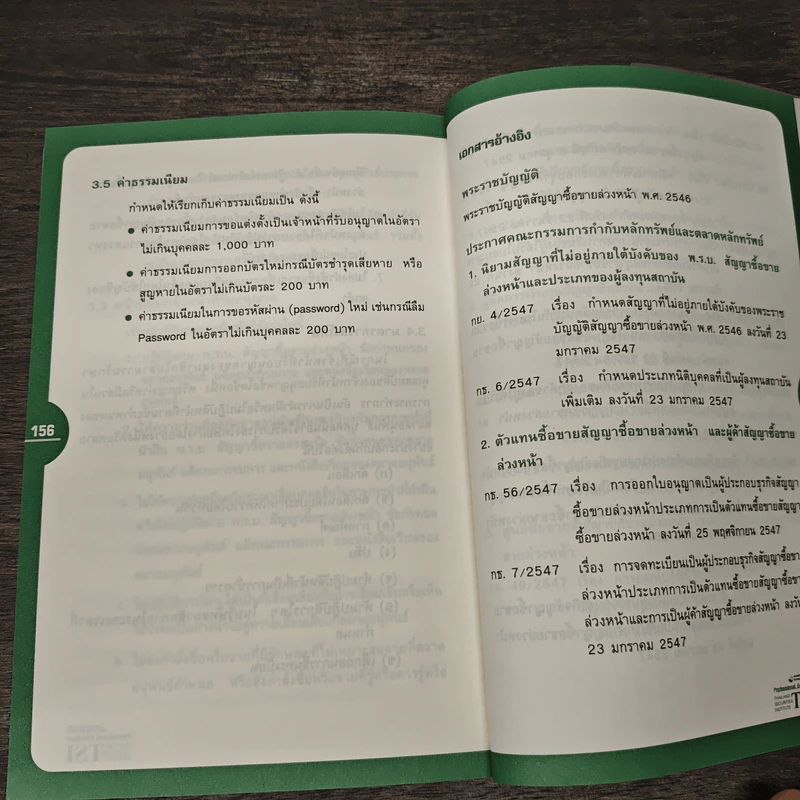 3.5 ค่าธรรมเนียม
กำหนดให้เรียกเก็บค่าธรรมเนียมเป็น ดังนี้
● ค่าธรรมเนียมการขอแต่งตั้งเป็นเจ้าหน้าที่รับอนุญาตในอัตรา
ไม่เกินบุคคลละ 1,000 บาท
● ค่าธรรมเนียมการออกบัตรใหม่กรณีบัตรชำรุดเสียหาย หรือ
สูญหายในอัตราไม่เกินบัตรละ 200 บาท
● ค่าธรรมเนียมในการขอรหัสผ่าน (password) ใหม่ เช่นกรณีลืม
Password ในอัตราไม่เกินบุคคลละ 200 บาท
156
เอกสารอ้างอิง
พระราชบัญญัติ
พระราชบัญญัติสัญญาซื้อขายล่วงหน้า พ.ศ. 2546
ประกาศคณะกรรมการกำกับหลักทรัพย์และตลาดหลักทรัพย์
1. นิยามสัญญาที่ไม่อยู่ภายใต้บังคับของ พ.ร.บ. สัญญาซื้อขาย
ล่วงหน้าและประเภทของผู้ลงทุนสถาบัน
กย. 4/2547 เรื่อง กำหนดสัญญาที่ไม่อยู่ภายใต้บังคับของพระราช
บัญญัติสัญญาซื้อขายล่วงหน้า พ.ศ. 2546 ลงวันที่ 23
มกราคม 2547
กธ. 6/2547 เรื่อง กำหนดประเภทนิติบุคคลที่เป็นผู้ลงทุนสถาบัน
เพิ่มเติม ลงวันที่ 23 มกราคม 2547
2. ตัวแทนซื้อขายสัญญาซื้อขายล่วงหน้า และผู้ค้าสัญญาซื้อขาย
ล่วงหน้า
กธ. 56/2547 เรื่อง การออกใบอนุญาตเป็นผู้ประกอบธุรกิจสัญญา
ซื้อขายล่วงหน้าประเภทการเป็นตัวแทนซื้อขายสัญญา
ซื้อขายล่วงหน้า ลงวันที่ 25 พฤศจิกายน 2547
กธ. 7/2547 เรื่อง การจดทะเบียนเป็นผู้ประกอบธุรกิจสัญญาซื้อขา
ล่วงหน้าประเภทการเป็นตัวแทนซื้อขายสัญญาซื้อขา
ล่วงหน้าและการเป็นผู้ค้าสัญญาซื้อขายล่วงหน้า ลงวัน
23 มกราคม 2547
THAILAND
SECURITIES
INSTITUTE